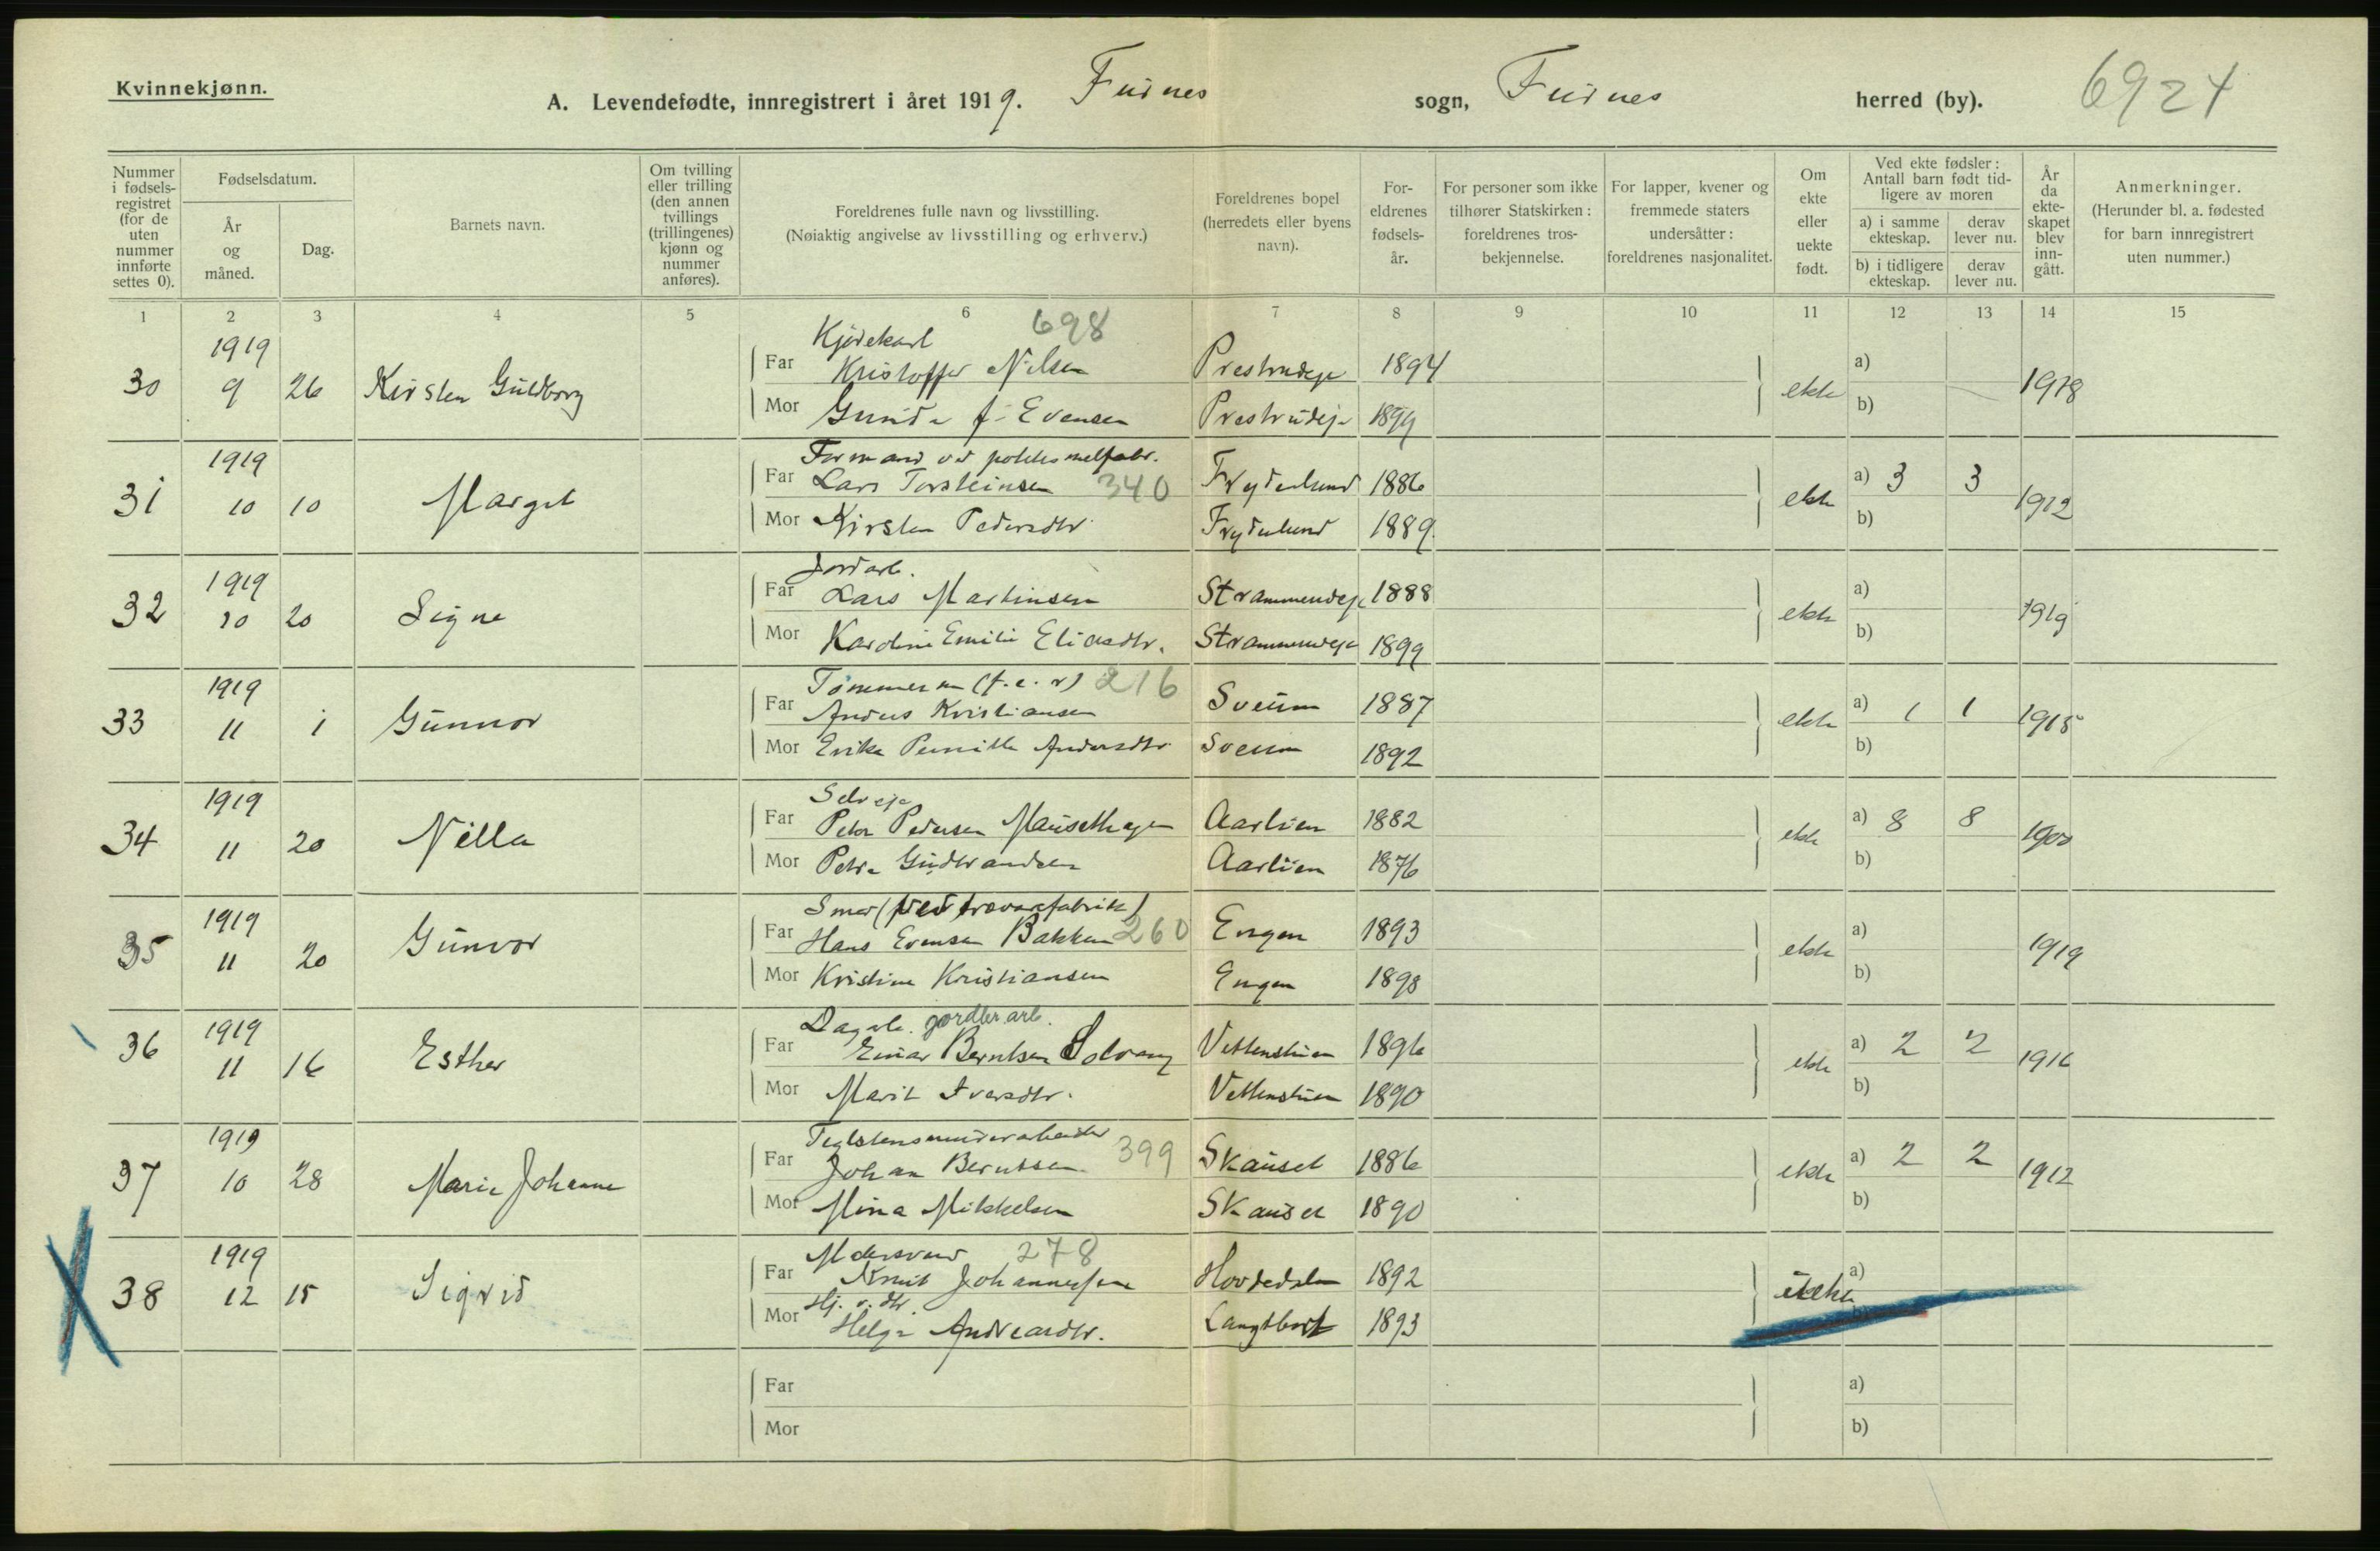 Kvinnekjønn.
A. Levendefødte, innregistrert i året 1919. Furnes sogn, Furnes herred (by). 6924
Nummer i fødsels-registret (for de uten nummer innførte settes 0).
Fødselsdatum.
År og måned.
Dag.
Barnets navn.
Om tvilling eller trilling (den annen tvillings (trillingenes) kjønn og nummer anføres).
Foreldrenes fulle navn og livsstilling.
(Nøiaktig angivelse av livsstilling og erhverv.)
Foreldrenes bopel (herredets eller byens navn).
For-eldrenes fødsels-år.
For personer som ikke tilhører Statskirken: foreldrenes tros-bekjennelse.
For lapper, kvener og fremmede staters undersåtter: foreldrenes nasjonalitet.
Om ekte eller uekte født.
Ved ekte fødsler: Antall barn født tid-ligere av moren
a) i samme ekteskap.
derav lever nu.
b) i tidligere ekteskap.
derav lever nu.
År da ekte-skapet blev inn-gått.
Anmerkninger.
(Herunder bl. a. fødested for barn innregistrert uten nummer.)
1 2 3 4 5 6 7 8 9 10 11 12 13 14 15
1919 Kjørekarl 698
30 9 26 Kirsten Guldborg Far Kristoffer Nilsen Prestrudeje 1894 ekte a) 1918
Mor Gunda f. Evensen Prestrudeje 1899 b)
1919 Formand ved potetesmelfabr.
31 10 10 Margit Far Lars Torsteinsen 340 Frydenlund 1886 ekte a) 3 3 1912
Mor Kirsten Pedersdtr Frydenlund 1889 b)
1919 Jordarb.
32 10 20 Signe Far Lars Martinsen Strammendeje 1888 ekte a) 1919
Mor Karoline Emilie Eliasdtr. Strammendeje 1899 b)
1919 Tømmerm (f. e. r) 216
33 11 1 Gunnor Far Anders Kristiansen Sveum 1887 ekte a) 1 1 1915
Mor Erika Pernille Andersdtr Sveum 1892 b)
1919 Selveje
34 11 20 Nilla Far Peter Pedersen Mausethagen Aarlien 1882 ekte a) 8 8 1900
Mor Petra Gudbrandsen Aarlien 1876 b)
1919 Smed (ved trævarefabrik)
35 11 20 Gunvor Far Hans Evensen Bakken 260 Engen 1893 ekte a) 1919
Mor Kristine Kristiansen Engen 1898 b)
1919 Dagarb. gordbr.arb.
36 11 16 Esther Far Einar Berntsen Solvang Vettenstuen 1896 ekte a) 2 2 1916
Mor Marit Iversdtr. Vettenstuen 1890 b)
1919 Teglstensmurerarbeider
37 10 28 Marie Johanne Far Johan Berntsen 399 Skauset 1886 ekte a) 2 2 1912
Mor Mina Mikkelsen Skauset 1890 b)
1919 278
38 12 15 Sigrid Far Knut Johannessen Hovdedalen 1892 uekte a)
Hj. v. dtr.
Mor Helga Andreasdtr. 1893 b)
Far a)
Mor b)